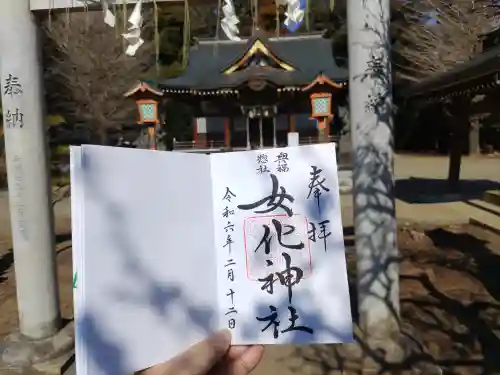 奉拝
興福
惣社
女化神社
令和六年二月十二日
奉納
奉納